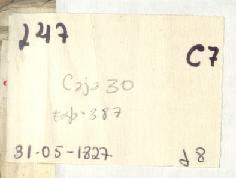 247
C7
Caja 30
exp-387
31-05-1827
d8